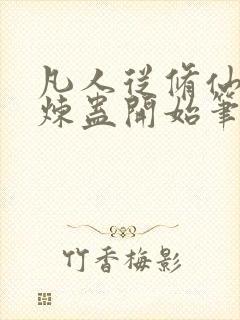 凡人從脩仙
煉蠱開始筆
竹香梅影